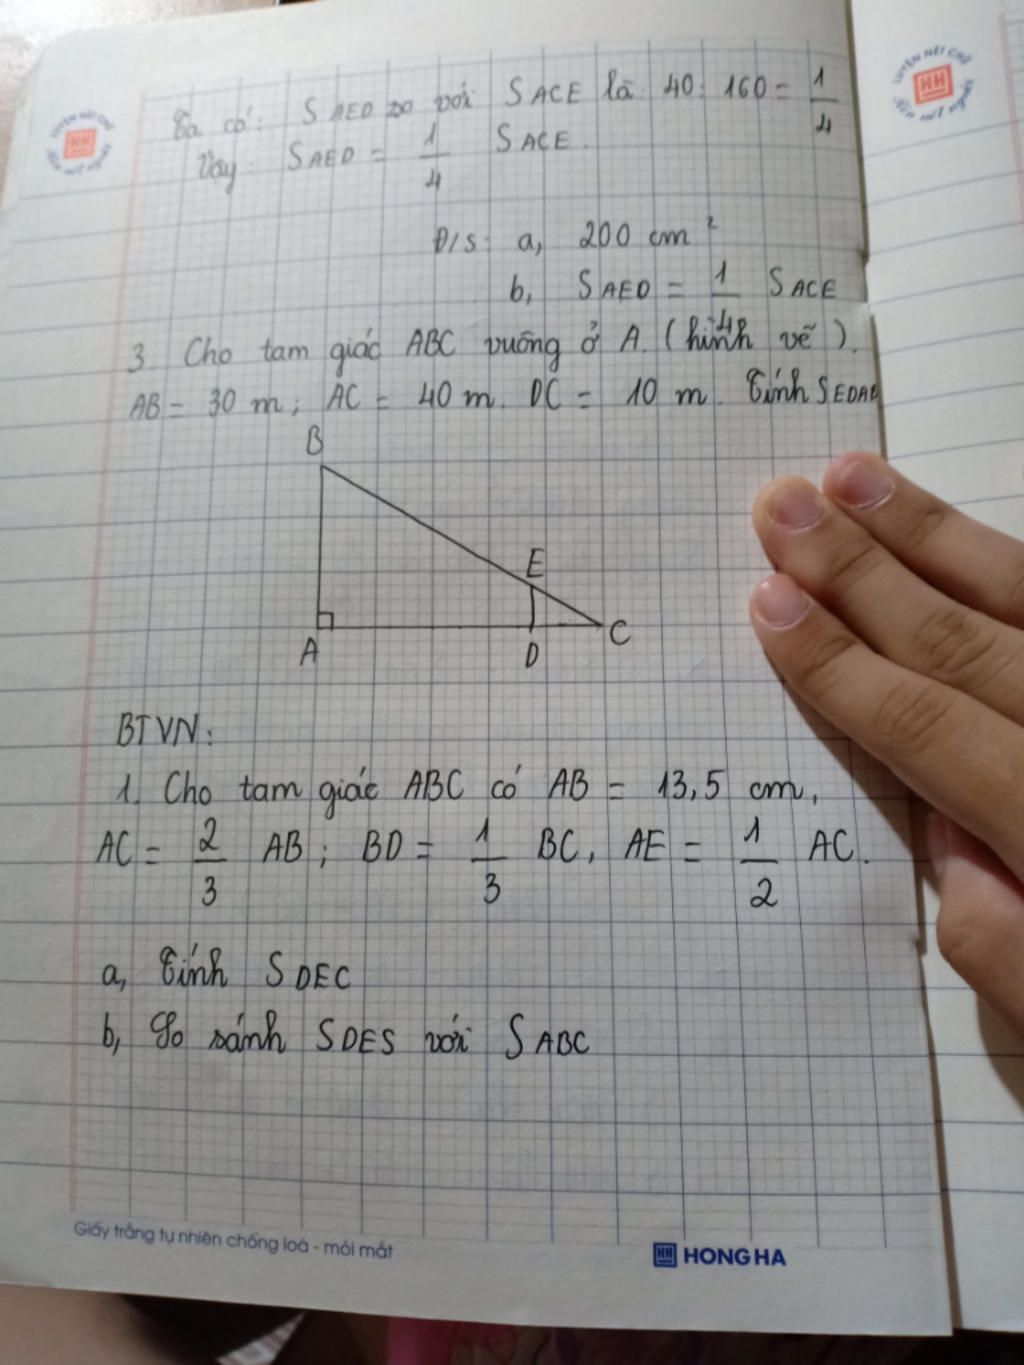 Ta có: S AED so với S ACE là: 40 : 160 = 1/4
Vậy: S AED = 1/4 S ACE.
Đ/s: a, 200 cm²
b, S AED = 1/4 S ACE
3. Cho tam giác ABC vuông ở A. (hình vẽ).
AB = 30 m; AC = 40 m. DC = 10 m. Tính S EDAB
B
E
A
D
C
BTVN:
1. Cho tam giác ABC có AB = 13,5 cm,
AC = 2/3 AB; BD = 1/3 BC, AE = 1/2 AC.
a, Tính S DEC
b, So sánh S DES với S ABC
Giấy trắng tự nhiên chống loá - mỏi mắt
HH HONG HA
LUYỆN NÉT CHỮ
RÈN NẾT NGƯỜI
HH
LUYỆN NÉT CHỮ
RÈN NẾT NGƯỜI
HH